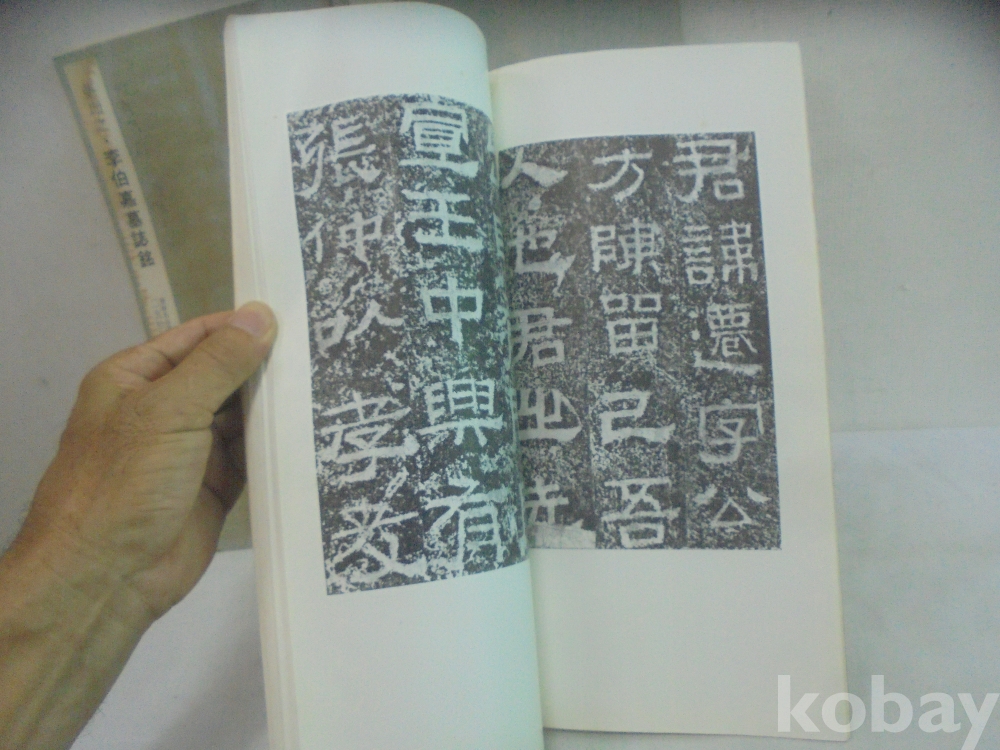 君諱遷字公
方陳留己吾
人也君之先
宣王中興有
張仲以孝友
李伯嘉墓誌銘
kobay